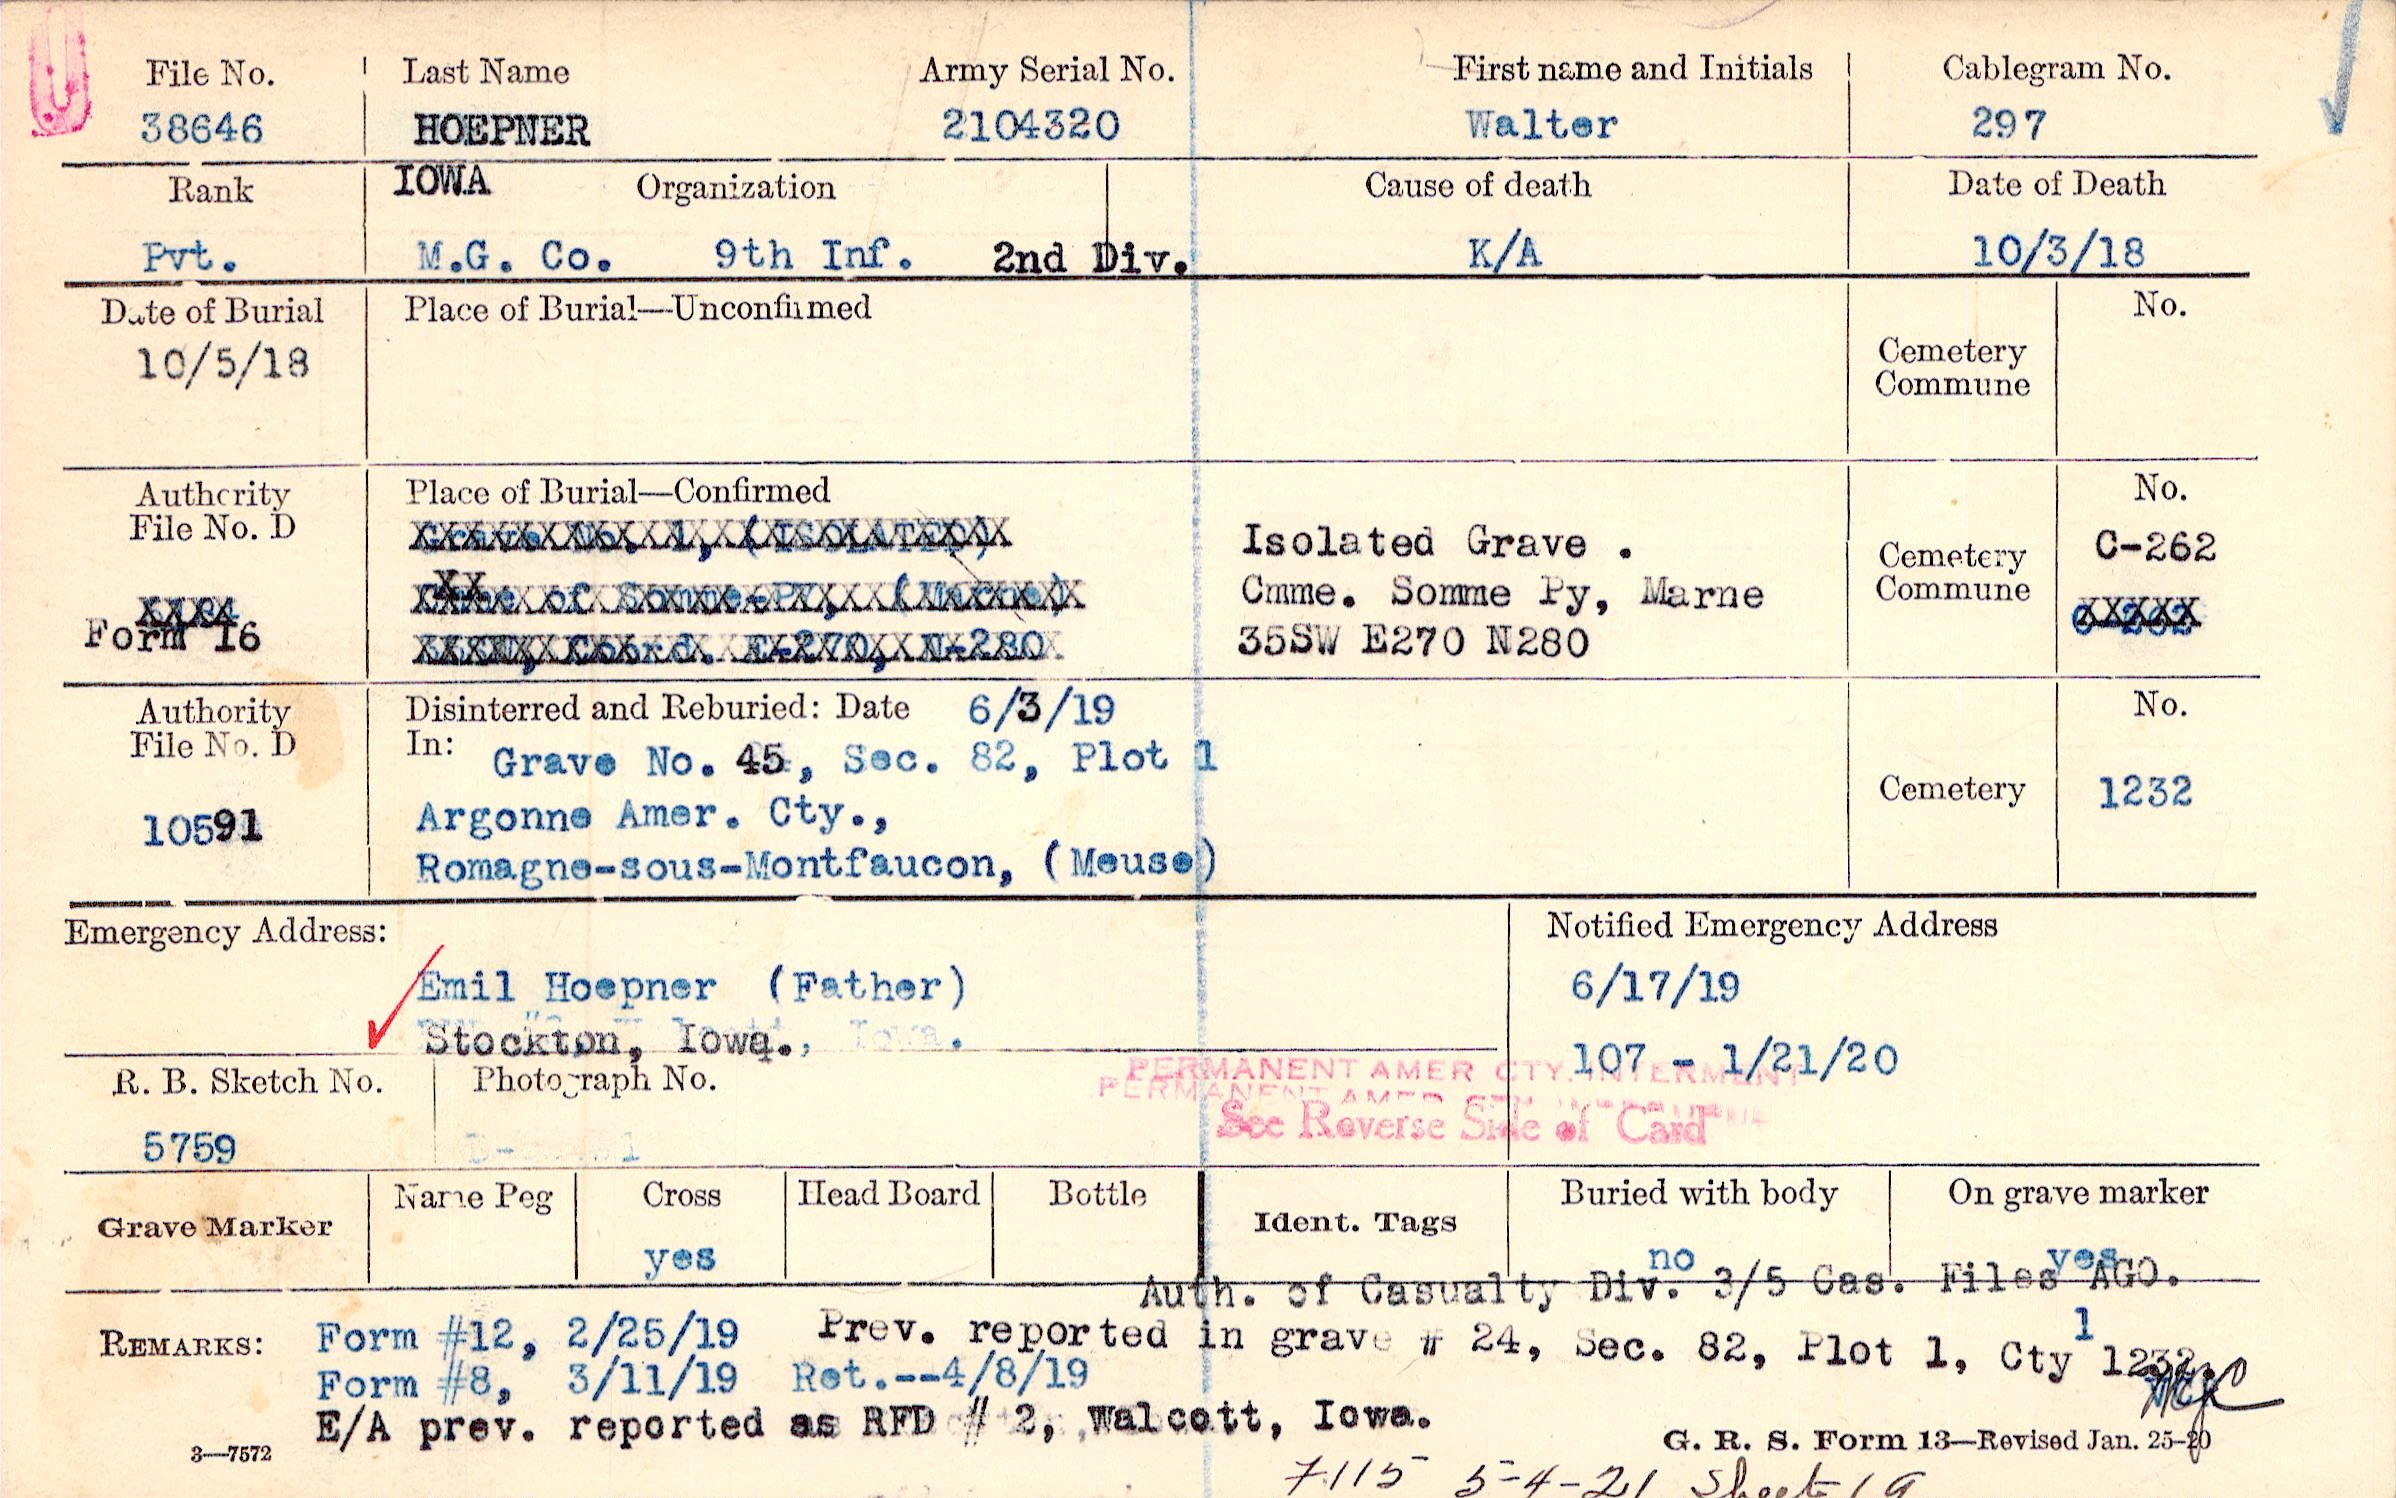 File No. Last Name Army Serial No. First name and Initials Cablegram No.
38646 HOEPNER 2104320 Walter 297
Rank IOWA Organization Cause of death Date of Death
Pvt. M.G. Co. 9th Inf. 2nd Div. K/A 10/3/18
Date of Burial Place of Burial—Unconfirmed No.
10/5/18
Cemetery
Commune
Authority Place of Burial—Confirmed No.
File No. D Grave No. 1, (ISOLATED) Isolated Grave . C-262
Cemetery
Cmne of Somme-Py, (Marne) Cmme. Somme Py, Marne Commune
Form 16 C-262
35SW, Coord. E-270, N-280 35SW E270 N280
Authority Disinterred and Reburied: Date 6/3/19 No.
File No. D In: Grave No. 45, Sec. 82, Plot 1
Cemetery 1232
10591 Argonne Amer. Cty.,
Romagne-sous-Montfaucon, (Meuse)
Emergency Address: Notified Emergency Address
Emil Hoepner (Father) 6/17/19
Stockton, Iowa., Iowa.
107 - 1/21/20
PERMANENT AMER CTY. INTERMENT
PERMANENT AMER
See Reverse Side of Card
R. B. Sketch No. Photograph No.
5759
Grave Marker Name Peg Cross Head Board Bottle Ident. Tags Buried with body On grave marker
yes no yes
Auth. of Casualty Div. 3/5 Cas. Files AGO.
REMARKS: Form #12, 2/25/19 Prev. reported in grave # 24, Sec. 82, Plot 1, Cty 1232.
1
Form #8, 3/11/19 Ret.--4/8/19
E/A prev. reported as RFD # 2, Walcott, Iowa.
3—7572 G. R. S. Form 13—Revised Jan. 25-20
7115 5-4-21 Sheet 19